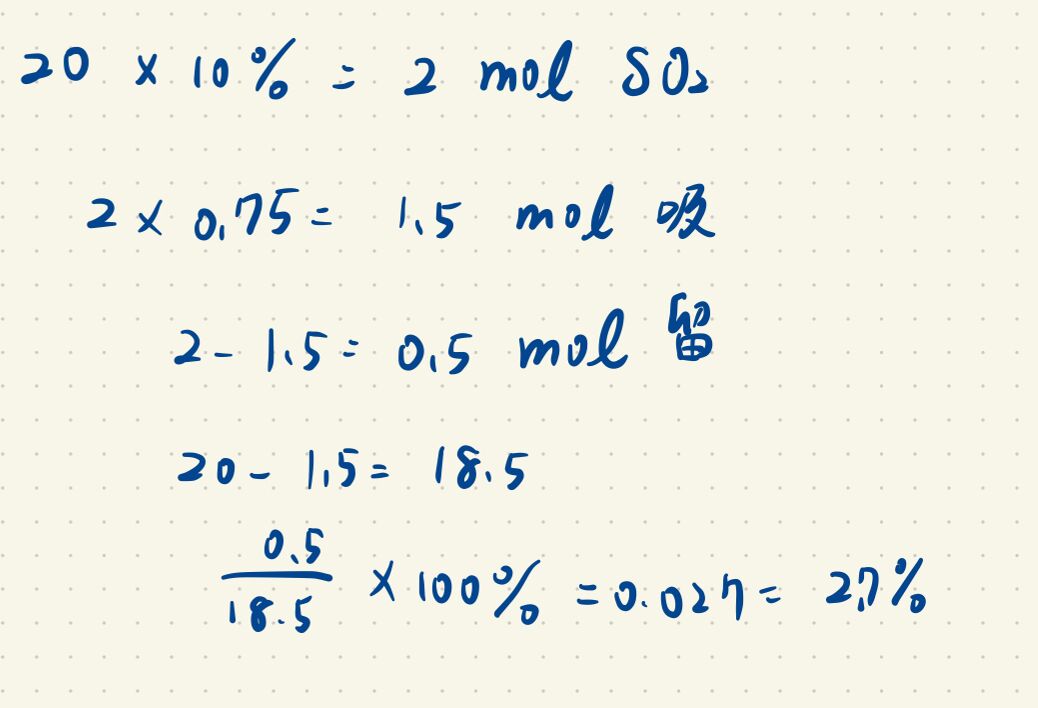 20 × 10% = 2 mol SO₂
2 × 0.75 = 1.5 mol 吸
2 - 1.5 = 0.5 mol 留
20 - 1.5 = 18.5
0.5/18.5 × 100% = 0.027 = 2.7%